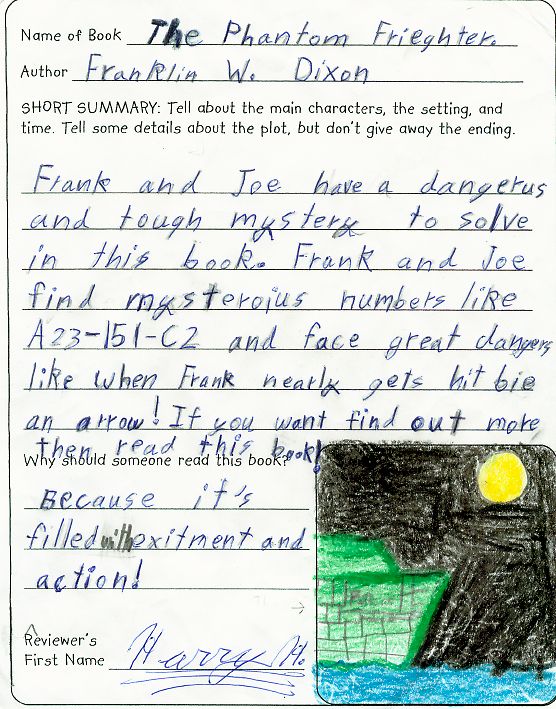 Name of Book The Phantom Frieghter.
Author Franklin W. Dixon
SHORT SUMMARY: Tell about the main characters, the setting, and
time. Tell some details about the plot, but don't give away the ending.
Frank and Joe have a dangerus
and tough mystery to solve
in this book. Frank and Joe
find mysteroius numbers like
A23-151-C2 and face great dangers
like when Frank nearly gets hit bie
an arrow! If you want find out more
then read this book!
Why should someone read this book?
Because it's
filled with exitment and
action!
Reviewer's
First Name Harry H.